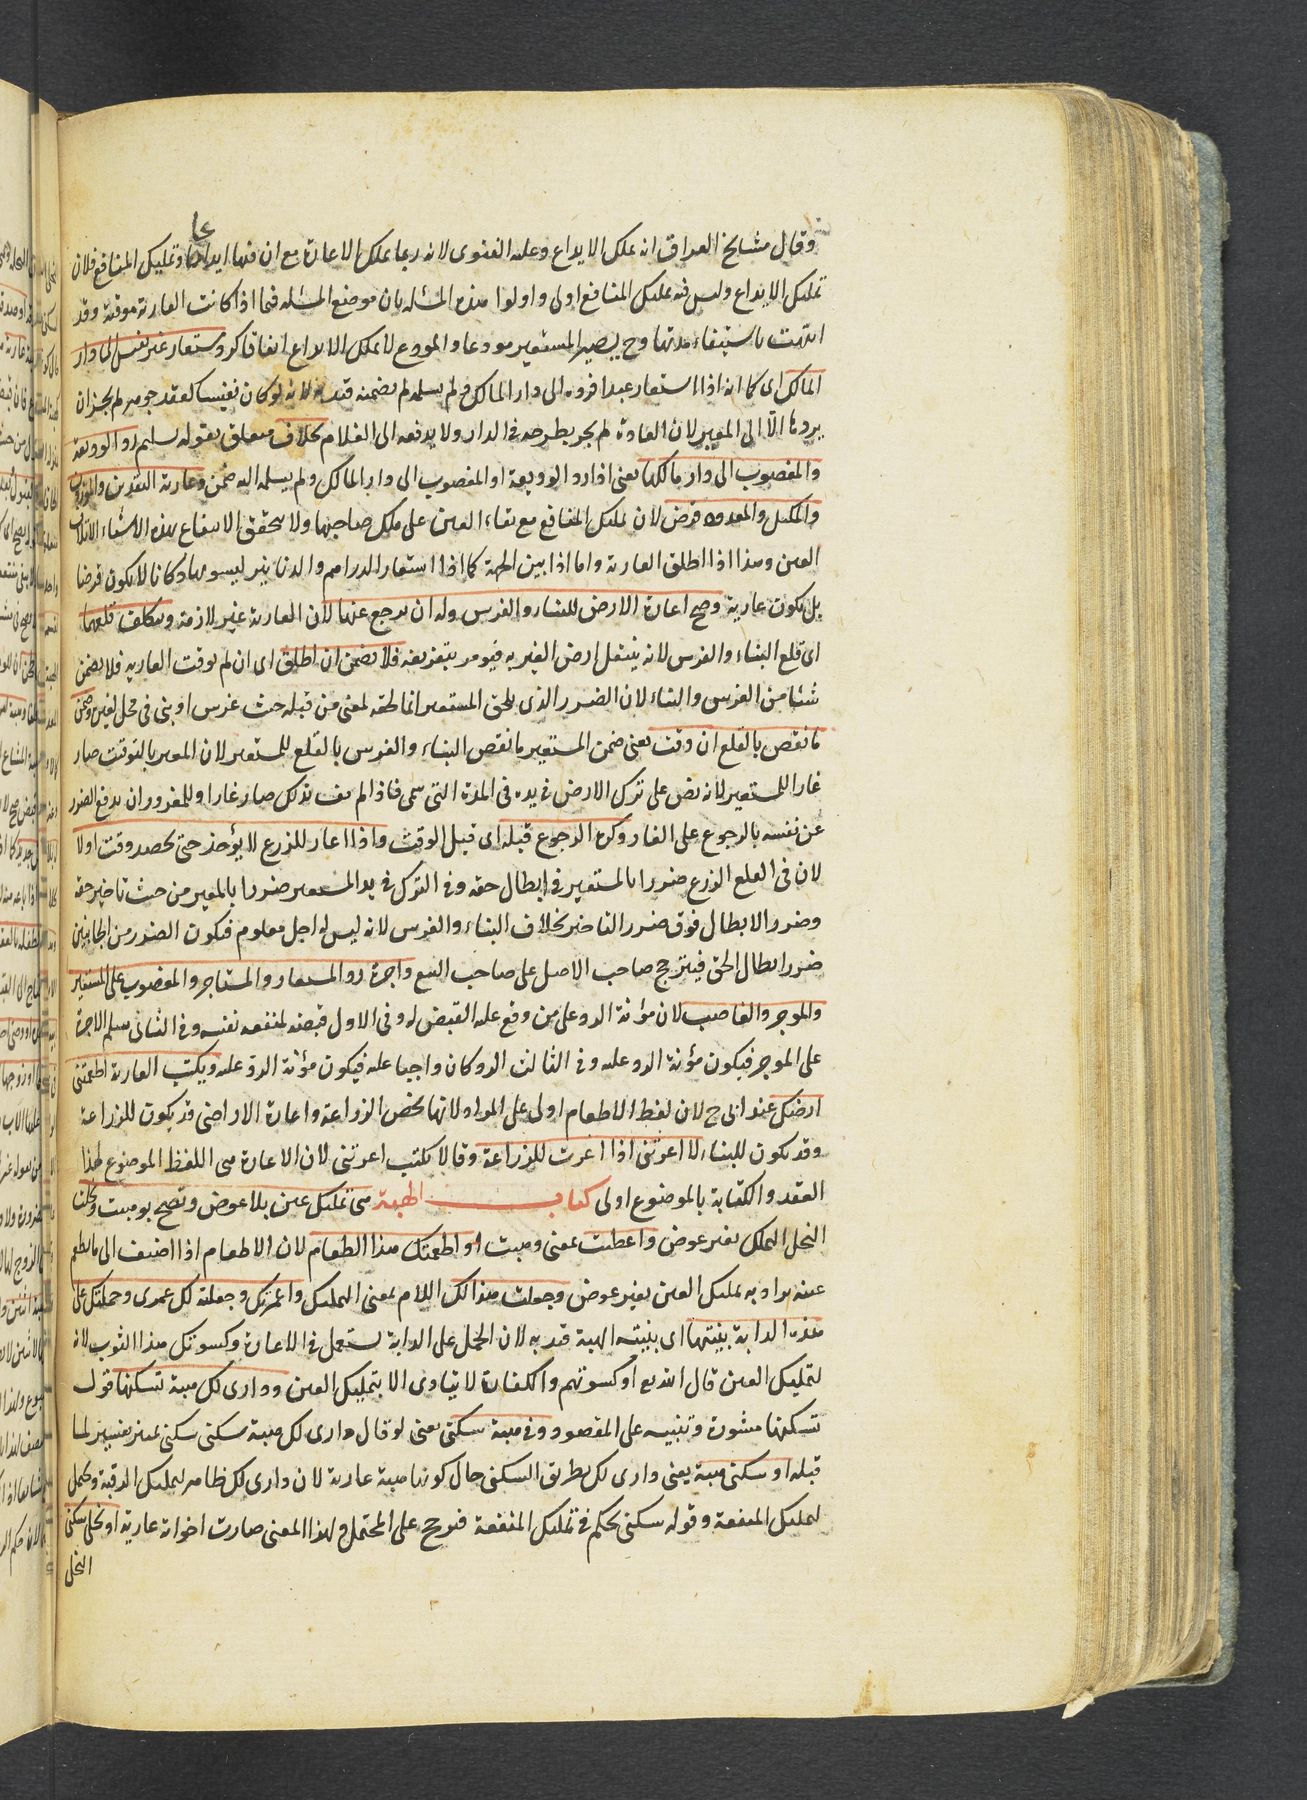 وقال مشايخ العراق انه يملك الايداع وعليه الفتوى لانه ربما يملك الاعارة مع ان فيها ايداعا وتمليك المنافع فلان
تمليك الايداع وليس فيه تمليك المنافع اولى واولوا هذه المسئلة بان موضع المسئلة فيما اذا كانت العارية موقتة وقد
انتهت باستيفاء مدتها وح يصير المستعير مودعا والمودع لا يملك الايداع اتفاقا كرد مستعار غير نفيس الى دار
المالك اى كما انه اذا استعار عبدا فرده الى دار المالك ولم يسلمه لم يضمنه قيد به لانه لو كان نفيسا كعقد جوهر لم يجز ان
يردها الا الى المعير لان العادة لم يجر بطرحه فى الدار ولا يدفعه الى الغلام بخلاف متعلق بقوله سليم رد الوديعة
والمغصوب الى دار مالكها يعنى اذا رد الوديعة او المغصوب الى دار المالك ولم يسلمه اليه ضمن وعارية النقدين والموزون
والمكيل والمعدود قرض لان تمليك المنافع مع بقاء العين على ملك صاحبها ولا يتحقق الانتفاع بهذه الاشياء الا باتلاف
العين وهذا اذا اطلق العارية واما اذا بين الجهة كما اذا استعار الدراهم والدنانير ليسوى بها دكانا لا يكون قرضا
بل يكون عارية وصح اعارة الارض للبناء والغرس وله ان يرجع عنها لان العارية غير لازمة ويكلف قلعهما
اى قلع البناء والغرس لانه يشغل ارض الغير به فيؤمر بتفريغه فلا يضمن ان اطلق اى ان لم يوقت العارية فلا يضمن
شيئا من الغرس والبناء لان الضرر الذى يلحق المستعير انما لحقه لمعنى من قبله حيث غرس او بنى فى محل لغيره وضمن
ما نقص بالقلع ان وقت يعنى ضمن المستعير ما نقص البناء والغرس بالقلع للمستعير لان المعير بالتوقيت صار
غارا للمستعير لانه نص على ترك الارض فى يده فى المدة التى سمى فاذا لم يف بذلك صار غارا وللمغرور ان يدفع الضرر
عن نفسه بالرجوع على الغار وكره الرجوع قبله اى قبل الوقت واذا اعار للزرع لا يؤخذ حتى يحصد وقت اولا
لان فى القلع الزرع ضررا بالمستعير فى ابطال حقه وفى الترك فى يد المستعير ضررا بالمعير من حيث تاخير حقه
وضرر الابطال فوق ضرر التاخير بخلاف البناء والغرس لانه ليس له اجل معلوم فيكون الضرر من الجانبين
ضرر ابطال الحق فيترجح صاحب الاصل على صاحب التبع واجرة رد المستعار والمستاجر والمغصوب على المستعير
والموجر والغاصب لان مؤنة الرد على من وقع عليه القبض له وفى الاول قبضه لمنفعة نفسه وفى الثانى سلم الاجرة
على الموجر فيكون مؤنة الرد عليه وفى الثالث الرد كان واجبا عليه فيكون مؤنة الرد عليه ويكتب العارية اطعمتنى
ارضك عند ابى ح لان لفظ الاطعام اولى على المراد لانها يخص الزراعة واعارة الاراضى قد يكون للزراعة
وقد يكون للبناء لا اعرتنى اذا اعرت للزراعة وقالا يكتب اعرتنى لان الاعارة هى اللفظ الموضوع لهذا
العقد والكتابة بالموضوع اولى كتاب الهبة هى تمليك عين بلا عوض وتصح بوهبت ونحلت
النحل التملك بغير عوض واعطيت بمعنى وهبت او اطعمتك هذا الطعام لان الاطعام اذا اضيف الى ما يطعم
عينه يراد به تمليك العين بغير عوض وجعلت هذا لك اللام بمعنى التمليك واعمرتك وجعلته لك عمرى وحملتك على
هذه الدابة بنيتها اى بنيته الهبة قيد به لان الحمل على الدابة يستعمل فى الاعارة وكسوتك هذا الثوب لانه
لتمليك العين قال الله تع او كسوتهم والكفارة لا يتادى الا بتمليك العين ودارى لك هبة تسكنها قوله
تسكنها مشورة وتنبيه على المقصود وفى هبة سكنى يعنى لو قال دارى لك هبة سكنى سكنى تمييز يفسير لما
قبله او سكنى هبة يعنى دارى لك بطريق السكنى حال كونها هبة عارية لان دارى لك ظاهر لتمليك الرقبة ويحمل
لتمليك المنفعة وقوله سكنى محكم فى تمليك المنفعة فرجح على المحتمل ولهذا المعنى صارت اخواته عارية او نحلى سكنى
النحل